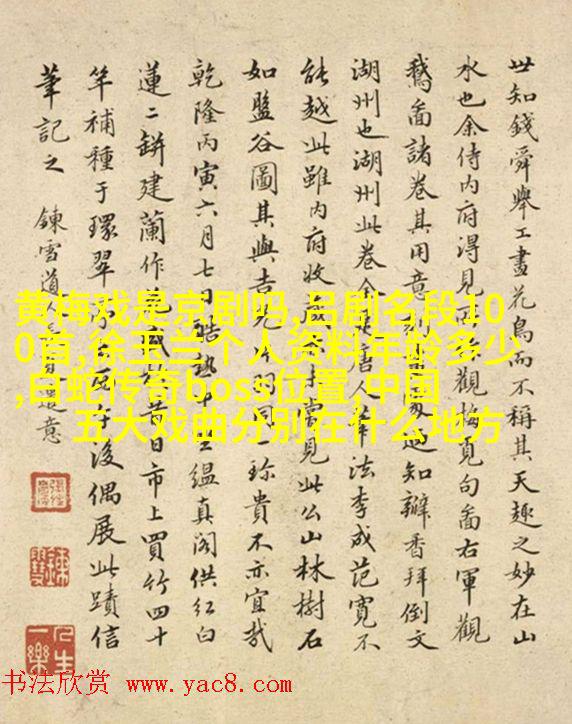 世知錢舜舉工畫花鳥而不稱其天趣之妙在山
水也余侍内府得見觀梅覓句啚右軍觀
鵝啚諸卷其用意是知瓣香拜倒文
湖州也湖州此卷全唐人筆法李成范寬不
能越此雖内府收藏未嘗見此公山林樹石
如盤谷圖其與吉光同珍貴不亦宜哉
乾隆丙寅六月七日酷熱坐緼真阁供红白
蓮二缾建蘭作日市上買竹四十
竿補種于環翠後偶展此蹟信
筆記之 鍊雪道人遺意
黄梅戏是京剧吗,吕剧名段10
0首,徐玉兰个人资料年龄多少
,白蛇传奇boss位置,中国
五大戏曲分别在什么地方
人生一樂
书法欣赏 www.yac8.com